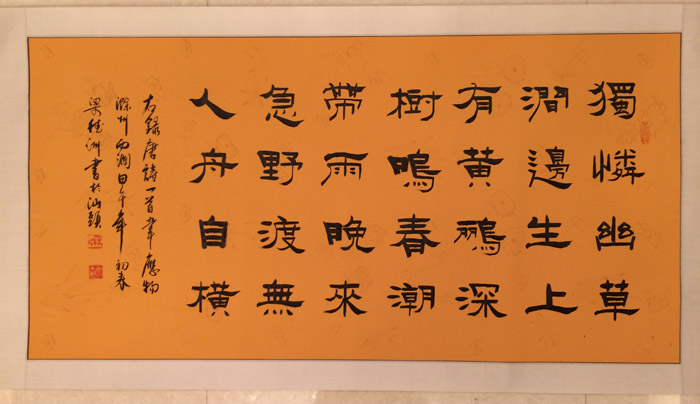 獨憐幽草
澗邊生上
有黄鸝深
樹鳴春潮
帶雨晚來
急野渡無
人舟自橫
右錄唐詩一首韋應物
滁州西澗甲午年初春
梁洲書於汕頭